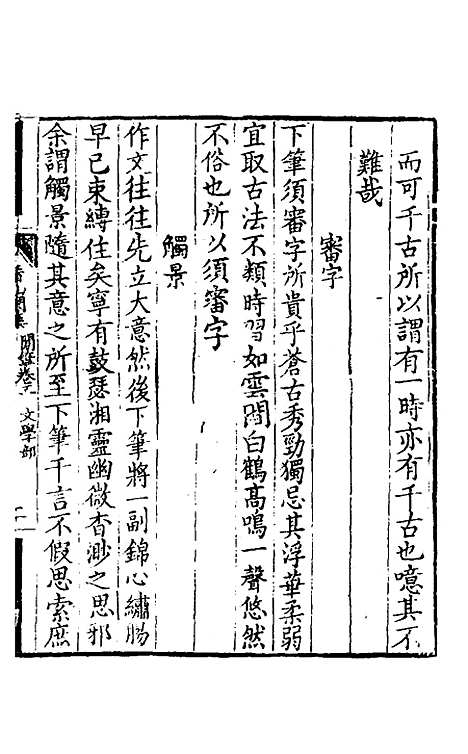 而可千古所以謂有一時亦有千古也噫其不
難哉
審字
下筆須審字所貴乎蒼古秀勁獨忌其浮華柔弱
宜取古法不類時習如雲間白鶴高鳴一聲悠然
不俗也所以須審字
觸景
作文往往先立大意然後下筆將一副錦心繡腸
早已束縛住矣寧有鼓瑟湘靈幽微杳渺之思邪
余謂觸景隨其意之所至下筆千言不假思索庶
文學部